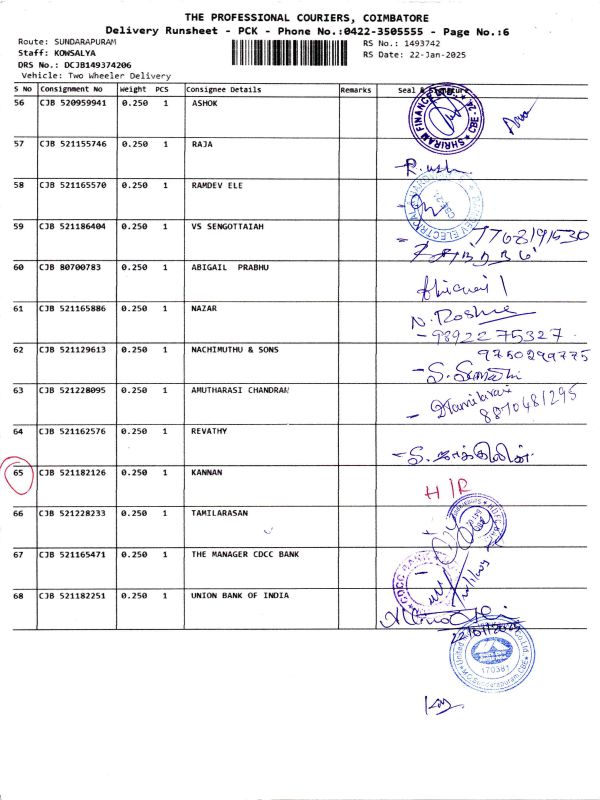 THE PROFESSIONAL COURIERS, COIMBATORE
Delivery Runsheet - PCK - Phone No.:0422-3505555 - Page No.:6
Route: SUNDARAPURAM
RS No.: 1493742
Staff: KOWSALYA
RS Date: 22-Jan-2025
DRS No.: DCJB149374206
Vehicle: Two Wheeler Delivery
S No Consignment No Weight PCS Consignee Details Remarks Seal & Signature
56 CJB 520959941 0.250 1 ASHOK
SHRIRAM FINANCE
57 CJB 521155746 0.250 1 RAJA
58 CJB 521165570 0.250 1 RAMDEV ELE
59 CJB 521186404 0.250 1 VS SENGOTTAIAH
7768191530
60 CJB 80700783 0.250 1 ABIGAIL PRABHU
61 CJB 521165886 0.250 1 NAZAR
9892275327
62 CJB 521129613 0.250 1 NACHIMUTHU & SONS
9750299775
S. Sumathi
63 CJB 521228095 0.250 1 AMUTHARASI CHANDRAN
8870481295
64 CJB 521162576 0.250 1 REVATHY
65 CJB 521182126 0.250 1 KANNAN
H/R
66 CJB 521228233 0.250 1 TAMILARASAN
67 CJB 521165471 0.250 1 THE MANAGER CDCC BANK
68 CJB 521182251 0.250 1 UNION BANK OF INDIA
22/01/2025
170381